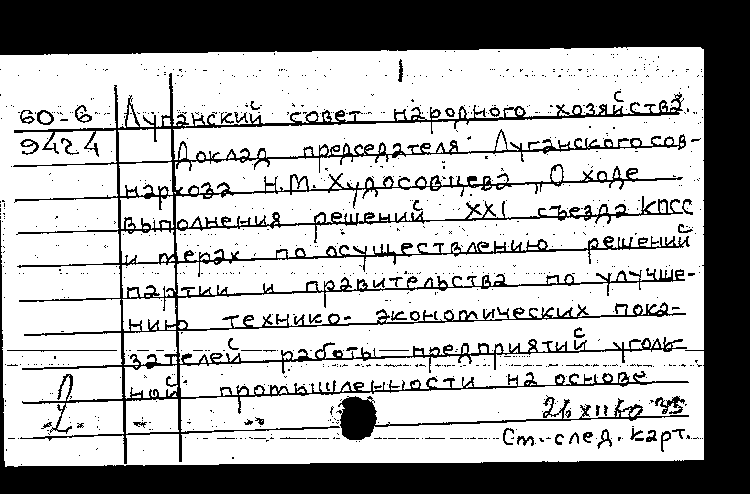 60-6
9424
Луганский совет народного хозяйства.
Доклад председателя Луганского сов-
наркоза Н.М. Худосовцева „О ходе
выполнения решений XXI съезда КПСС
и мерах по осуществлению решений
партии и правительства по улучше-
нию технико-экономических пока-
зателей работы предприятий уголь-
ной промышленности на основе
См. след. карт.